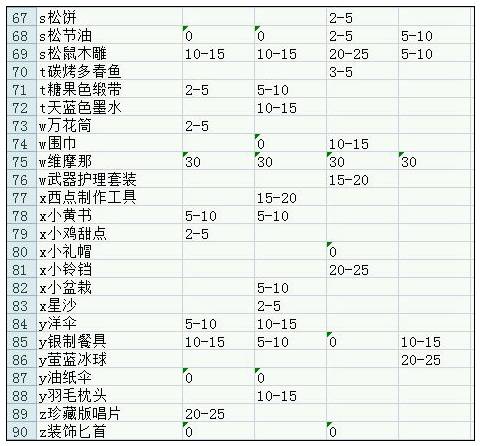 67 s松饼 2-5
68 s松节油 0 0 2-5 5-10
69 s松鼠木雕 10-15 10-15 20-25 5-10
70 t碳烤多春鱼 3-5
71 t糖果色缎带 2-5 5-10
72 t天蓝色墨水 10-15
73 w万花筒 2-5
74 w围巾 0 10-15
75 w维摩那 30 30 30 30
76 w武器护理套装 15-20
77 x西点制作工具 15-20
78 x小黄书 5-10 5-10
79 x小鸡甜点 2-5
80 x小礼帽 0
81 x小铃铛 20-25
82 x小盆栽 5-10
83 x星沙 2-5
84 y洋伞 5-10 10-15
85 y银制餐具 10-15 5-10 0 10-15
86 y萤蓝冰球 20-25
87 y油纸伞 0 0
88 y羽毛枕头 10-15
89 z珍藏版唱片 20-25
90 z装饰匕首 0 0